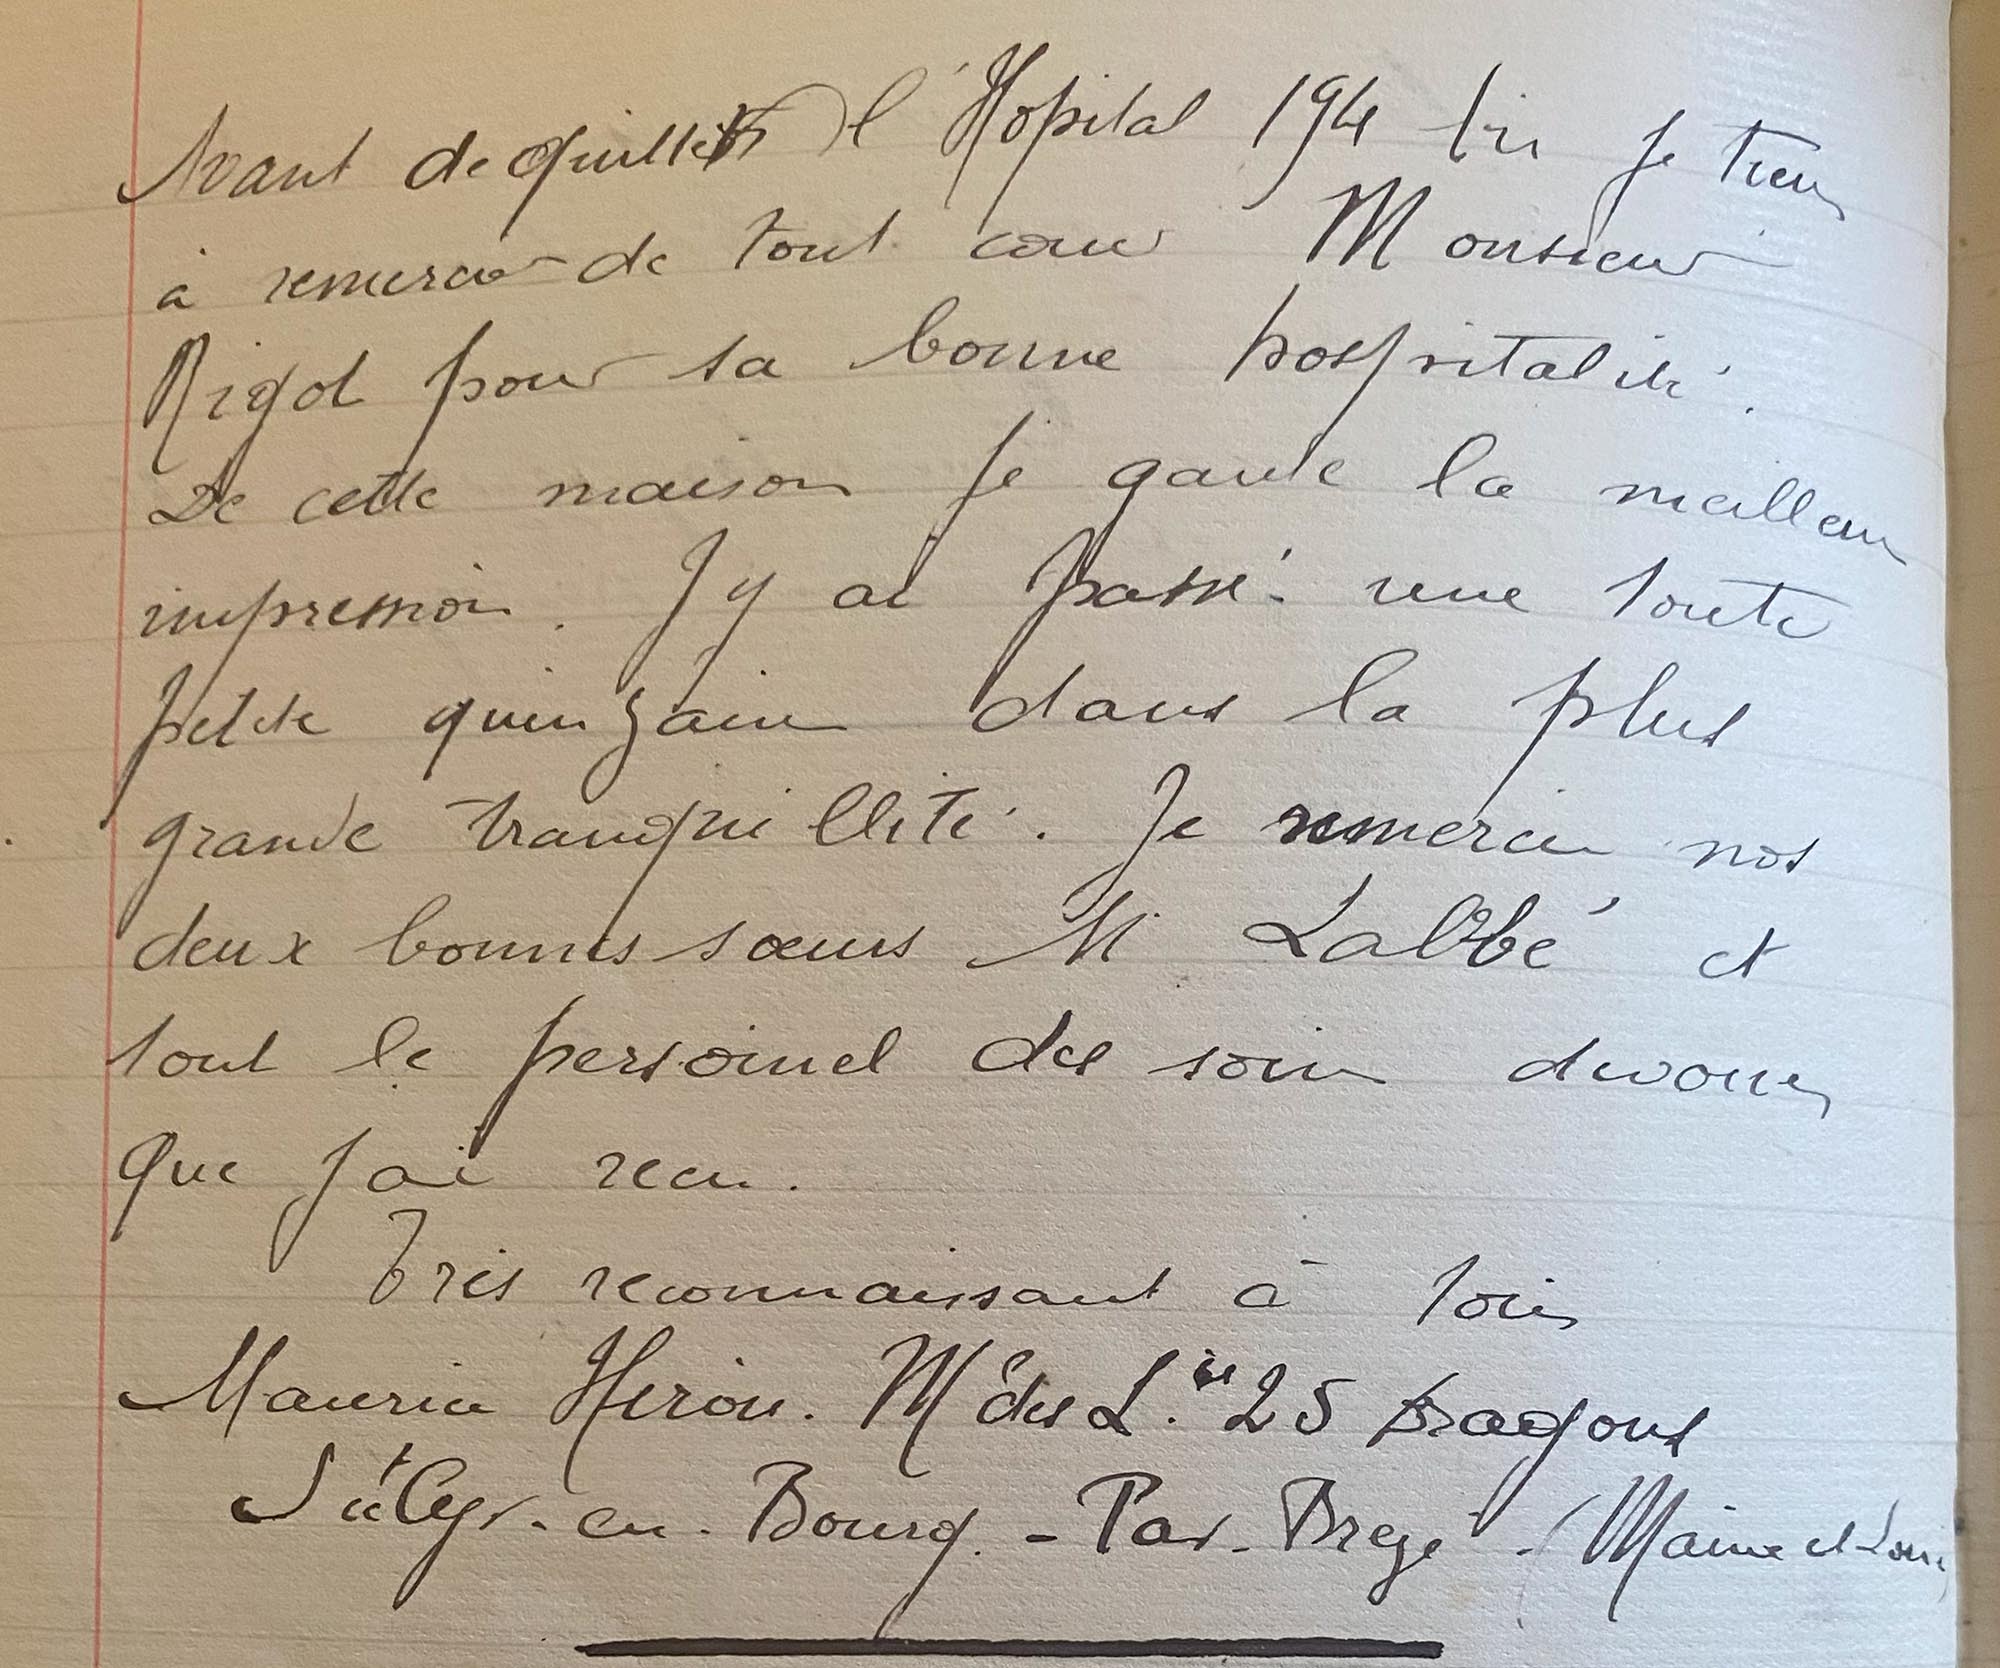 Avant de quitter l'Hopital 194 bis je tiens
à remercier de tout cœur Monsieur
Rigot pour sa bonne hospitalité.
De cette maison je garde la meilleur
impression. J y ai passé une toute
petite quinzaine dans la plus
grande tranquillité. Je remercie nos
deux bonnes sœurs M Labbé et
tout le personnel des soins devoues
que j ai recu.
Très reconnaissant à tous
Maurice Heron. M des L.is 25 Dragons
St Cyr-en-Bourg.-Par-Brezé-(Maine et Loire)